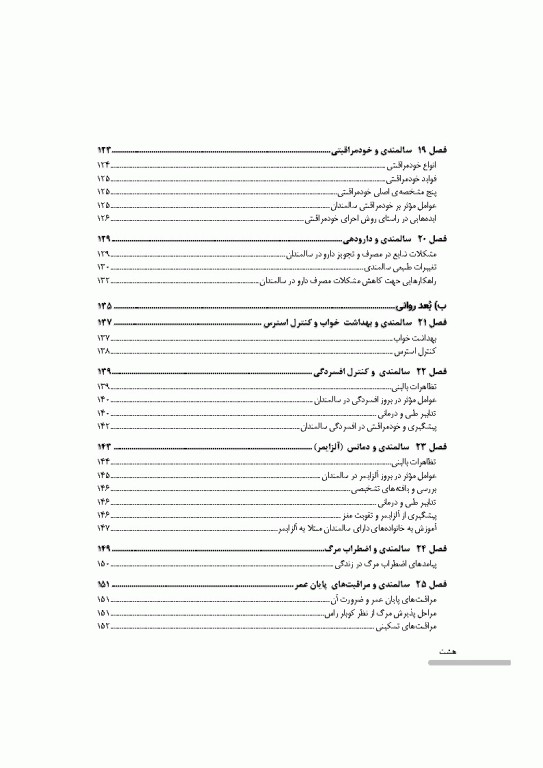 فصل ۱۹ سالمندی و خودمراقبتی ۱۲۳
انواع خودمراقبتی ۱۲۴
فواید خودمراقبتی ۱۲۵
پنج مشخصه‌ی اصلی خودمراقبتی ۱۲۵
عوامل مؤثر بر خودمراقبتی سالمندان ۱۲۵
ایده‌هایی در راستای روش اجرای خودمراقبتی ۱۲۶
فصل ۲۰ سالمندی و دارودهی ۱۲۹
مشکلات شایع در مصرف و تجویز دارو در سالمندان ۱۲۹
تغییرات طبیعی سالمندی ۱۳۰
راهکارهایی جهت کاهش مشکلات مصرف دارو در سالمندان ۱۳۲
ب) بُعد روانی ۱۳۵
فصل ۲۱ سالمندی و بهداشت خواب و کنترل استرس ۱۳۷
بهداشت خواب ۱۳۷
کنترل استرس ۱۳۸
فصل ۲۲ سالمندی و کنترل افسردگی ۱۳۹
تظاهرات بالینی ۱۳۹
عوامل مؤثر در بروز افسردگی در سالمندان ۱۴۰
تدابیر طبی و درمانی ۱۴۰
پیشگیری و خودمراقبتی در افسردگی سالمندان ۱۴۲
فصل ۲۳ سالمندی و دمانس (آلزایمر) ۱۴۳
تظاهرات بالینی ۱۴۴
عوامل مؤثر در بروز آلزایمر در سالمندان ۱۴۵
بررسی و یافته‌های تشخیصی ۱۴۶
تدابیر طبی و درمانی ۱۴۶
پیشگیری از آلزایمر و تقویت مغز ۱۴۶
آموزش به خانواده‌های دارای سالمندان مبتلا به آلزایمر ۱۴۷
فصل ۲۴ سالمندی و اضطراب مرگ ۱۴۹
پیامدهای اضطراب مرگ در زندگی ۱۵۰
فصل ۲۵ سالمندی و مراقبت‌های پایان عمر ۱۵۱
مراقبت‌های پایان عمر و ضرورت آن ۱۵۱
مراحل پذیرش مرگ از نظر کوبلر راس ۱۵۱
مراقبت‌های تسکینی ۱۵۲
هشت